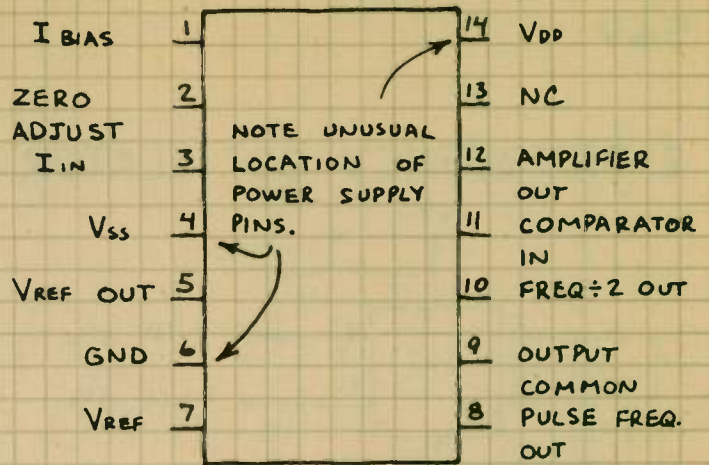 I BIAS 1
ZERO 2
ADJUST
IIN 3
VSS 4
VREF OUT 5
GND 6
VREF 7
NOTE UNUSUAL
LOCATION OF
POWER SUPPLY
PINS.
14 VDD
13 NC
12 AMPLIFIER
OUT
11 COMPARATOR
IN
10 FREQ÷2 OUT
9 OUTPUT
COMMON
8 PULSE FREQ.
OUT